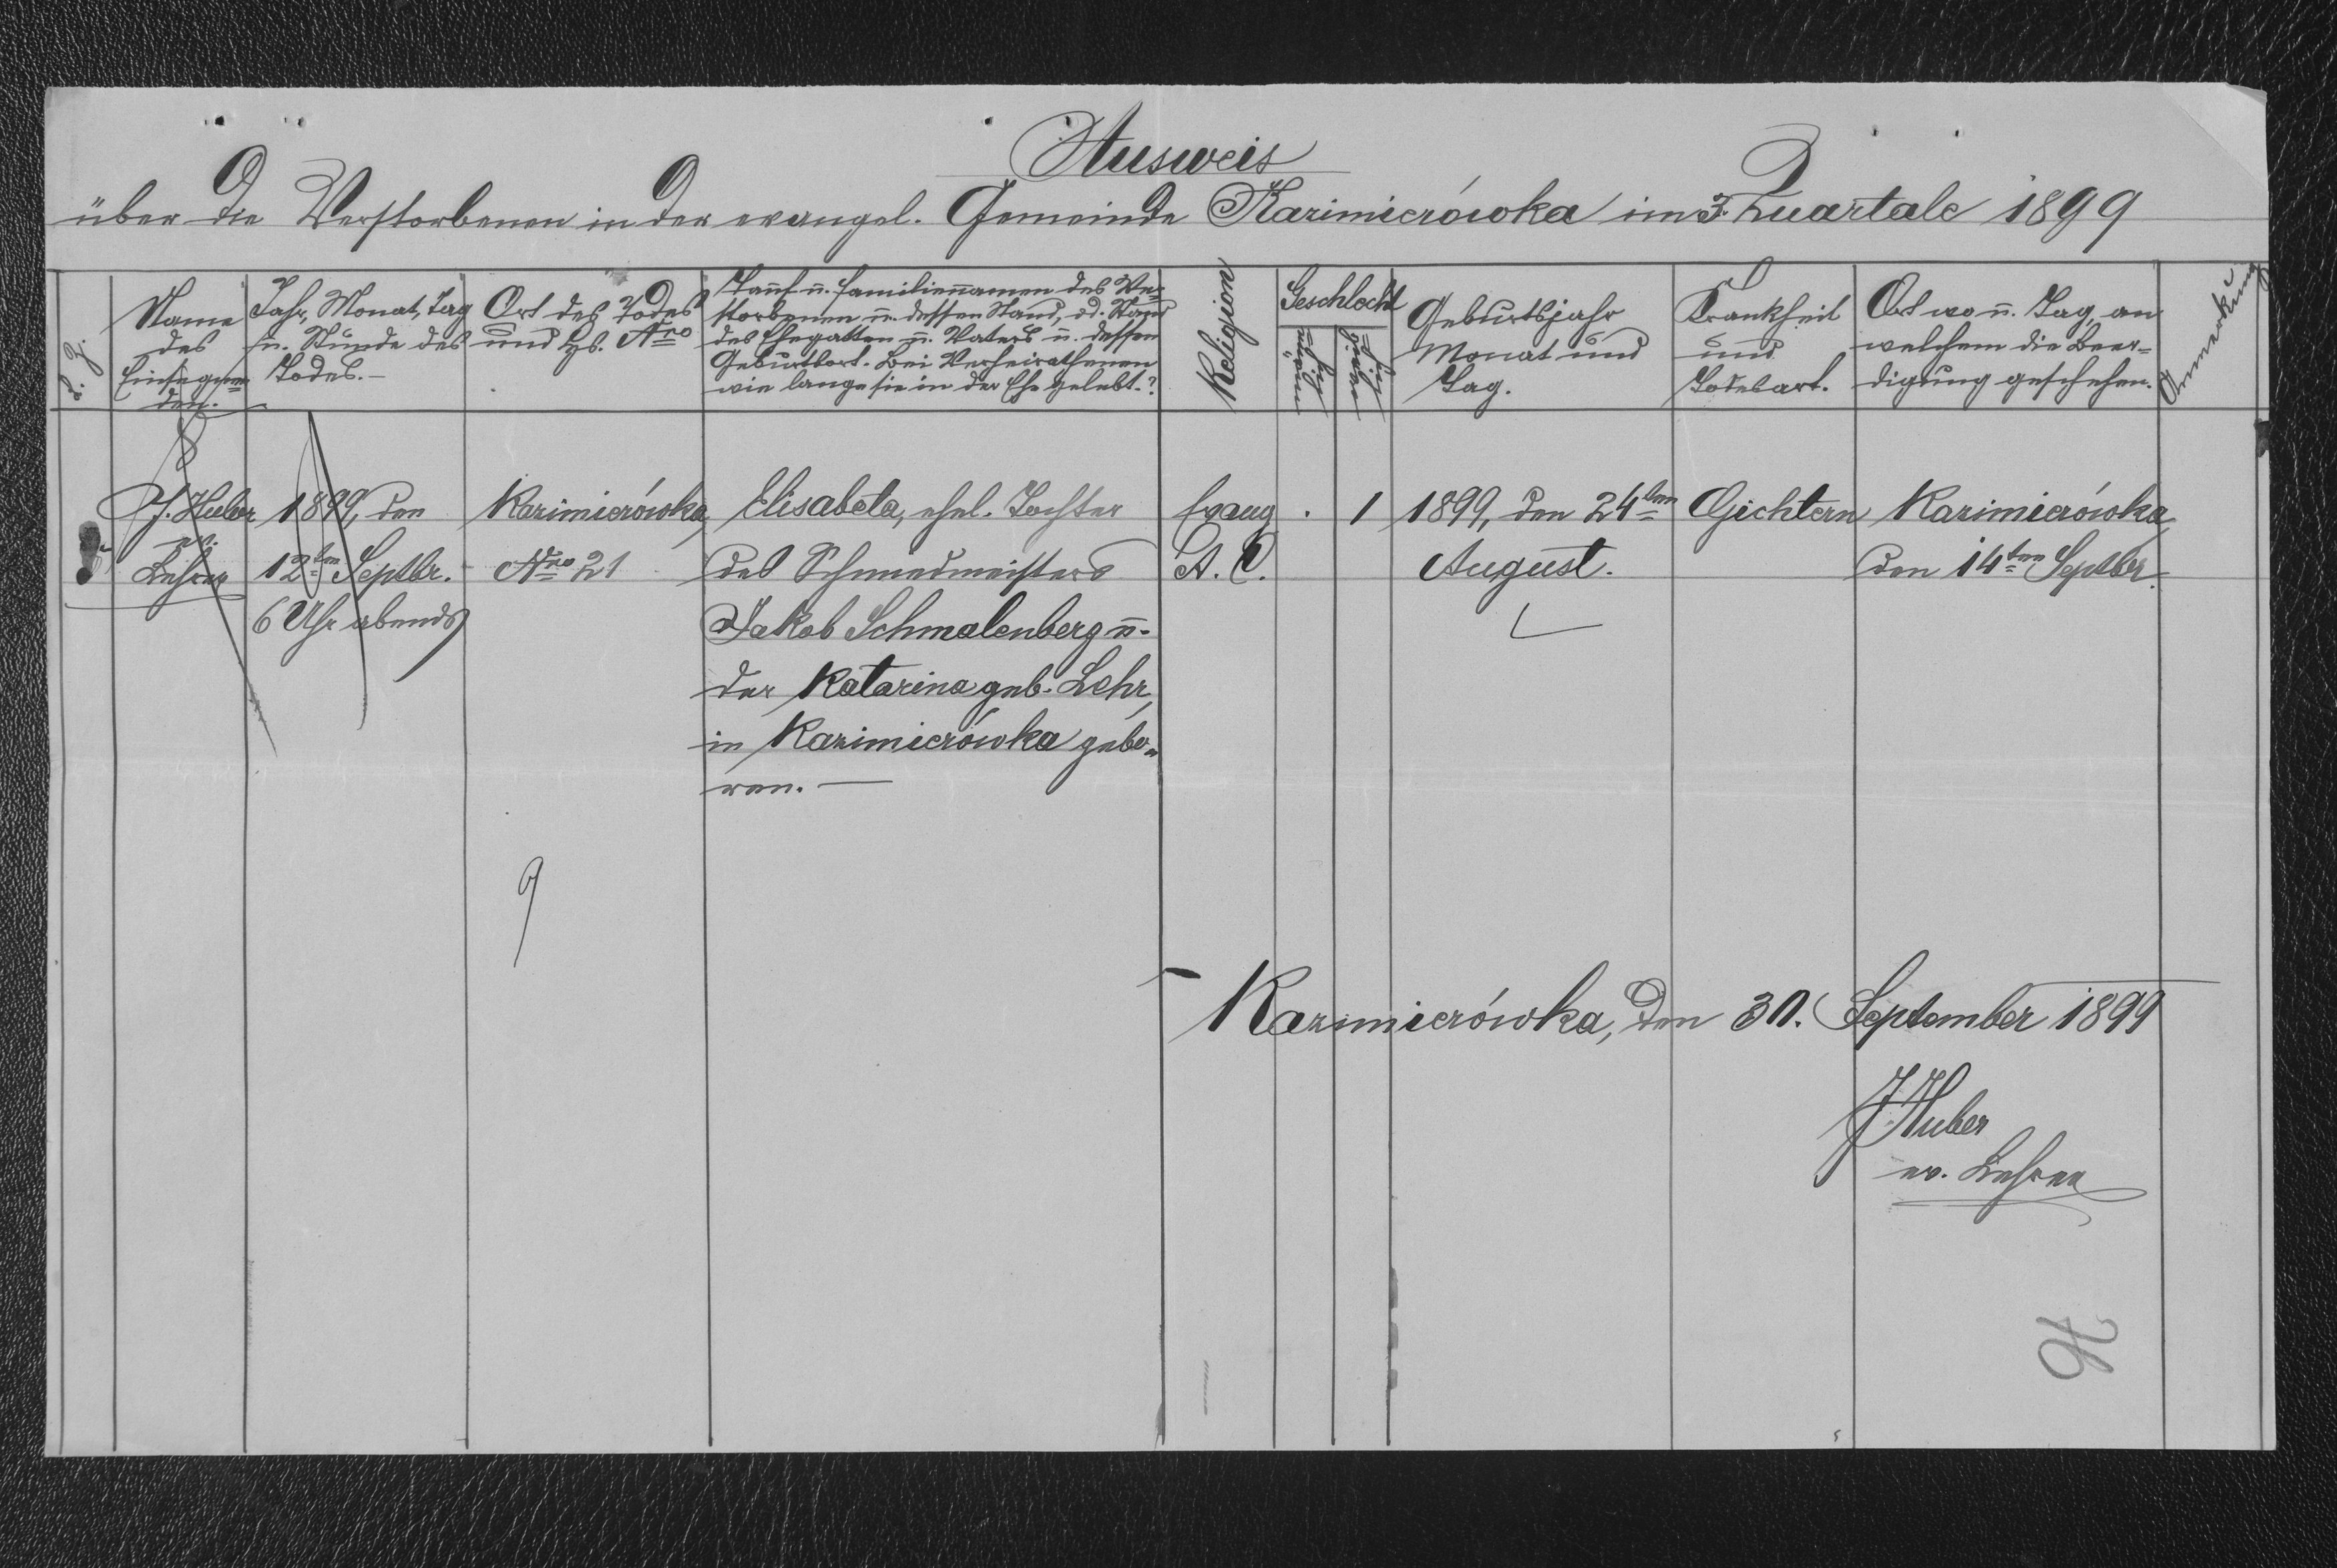 Ausweis
über die Verstorbenen in der evangel. Gemeinde Kazimierówka im 3. Quartale 1899
L. Z.
Name
des
Einsegnen=
den.
Jahr, Monat, Tag
u. Stunde des
Todes.—
Ort des Todes
und Hs. Nro
Tauf u. Familiennamen des Ver=
storbenen u. dessen Stand, od. Stand
des Ehegatten u. Vaters u. dessen
Geburtsort. Bei Verheirathenen
wie lange sie in der Ehe gelebt.?
Religion
Geschlecht
männ=
lich
weib=
lich
Geburtsjahr
Monat und
Tag.
Krankheit
und
Todesart.
Ort wo u. Tag, an
welchem die Beer=
digung geschehen.
Anmerkung
J. Huber
Lehrer
1899, den
12ten Septbr.
6 Uhr abends
Kazimierówka,
Nro 21
Elisabeta, ehel. Tochter
des Schmiedmeisters
Jakob Schmalenberg u.
der Katarina geb. Lehr,
in Kazimierówka gebo=
ren.—
Evang
A. C.
.
1
1899, den 24ten
August.
Gichtern
Kazimierówka,
den 14ten Septbr.
9
Kazimierówka, den 30. September 1899
J Huber
ev. Lehrer